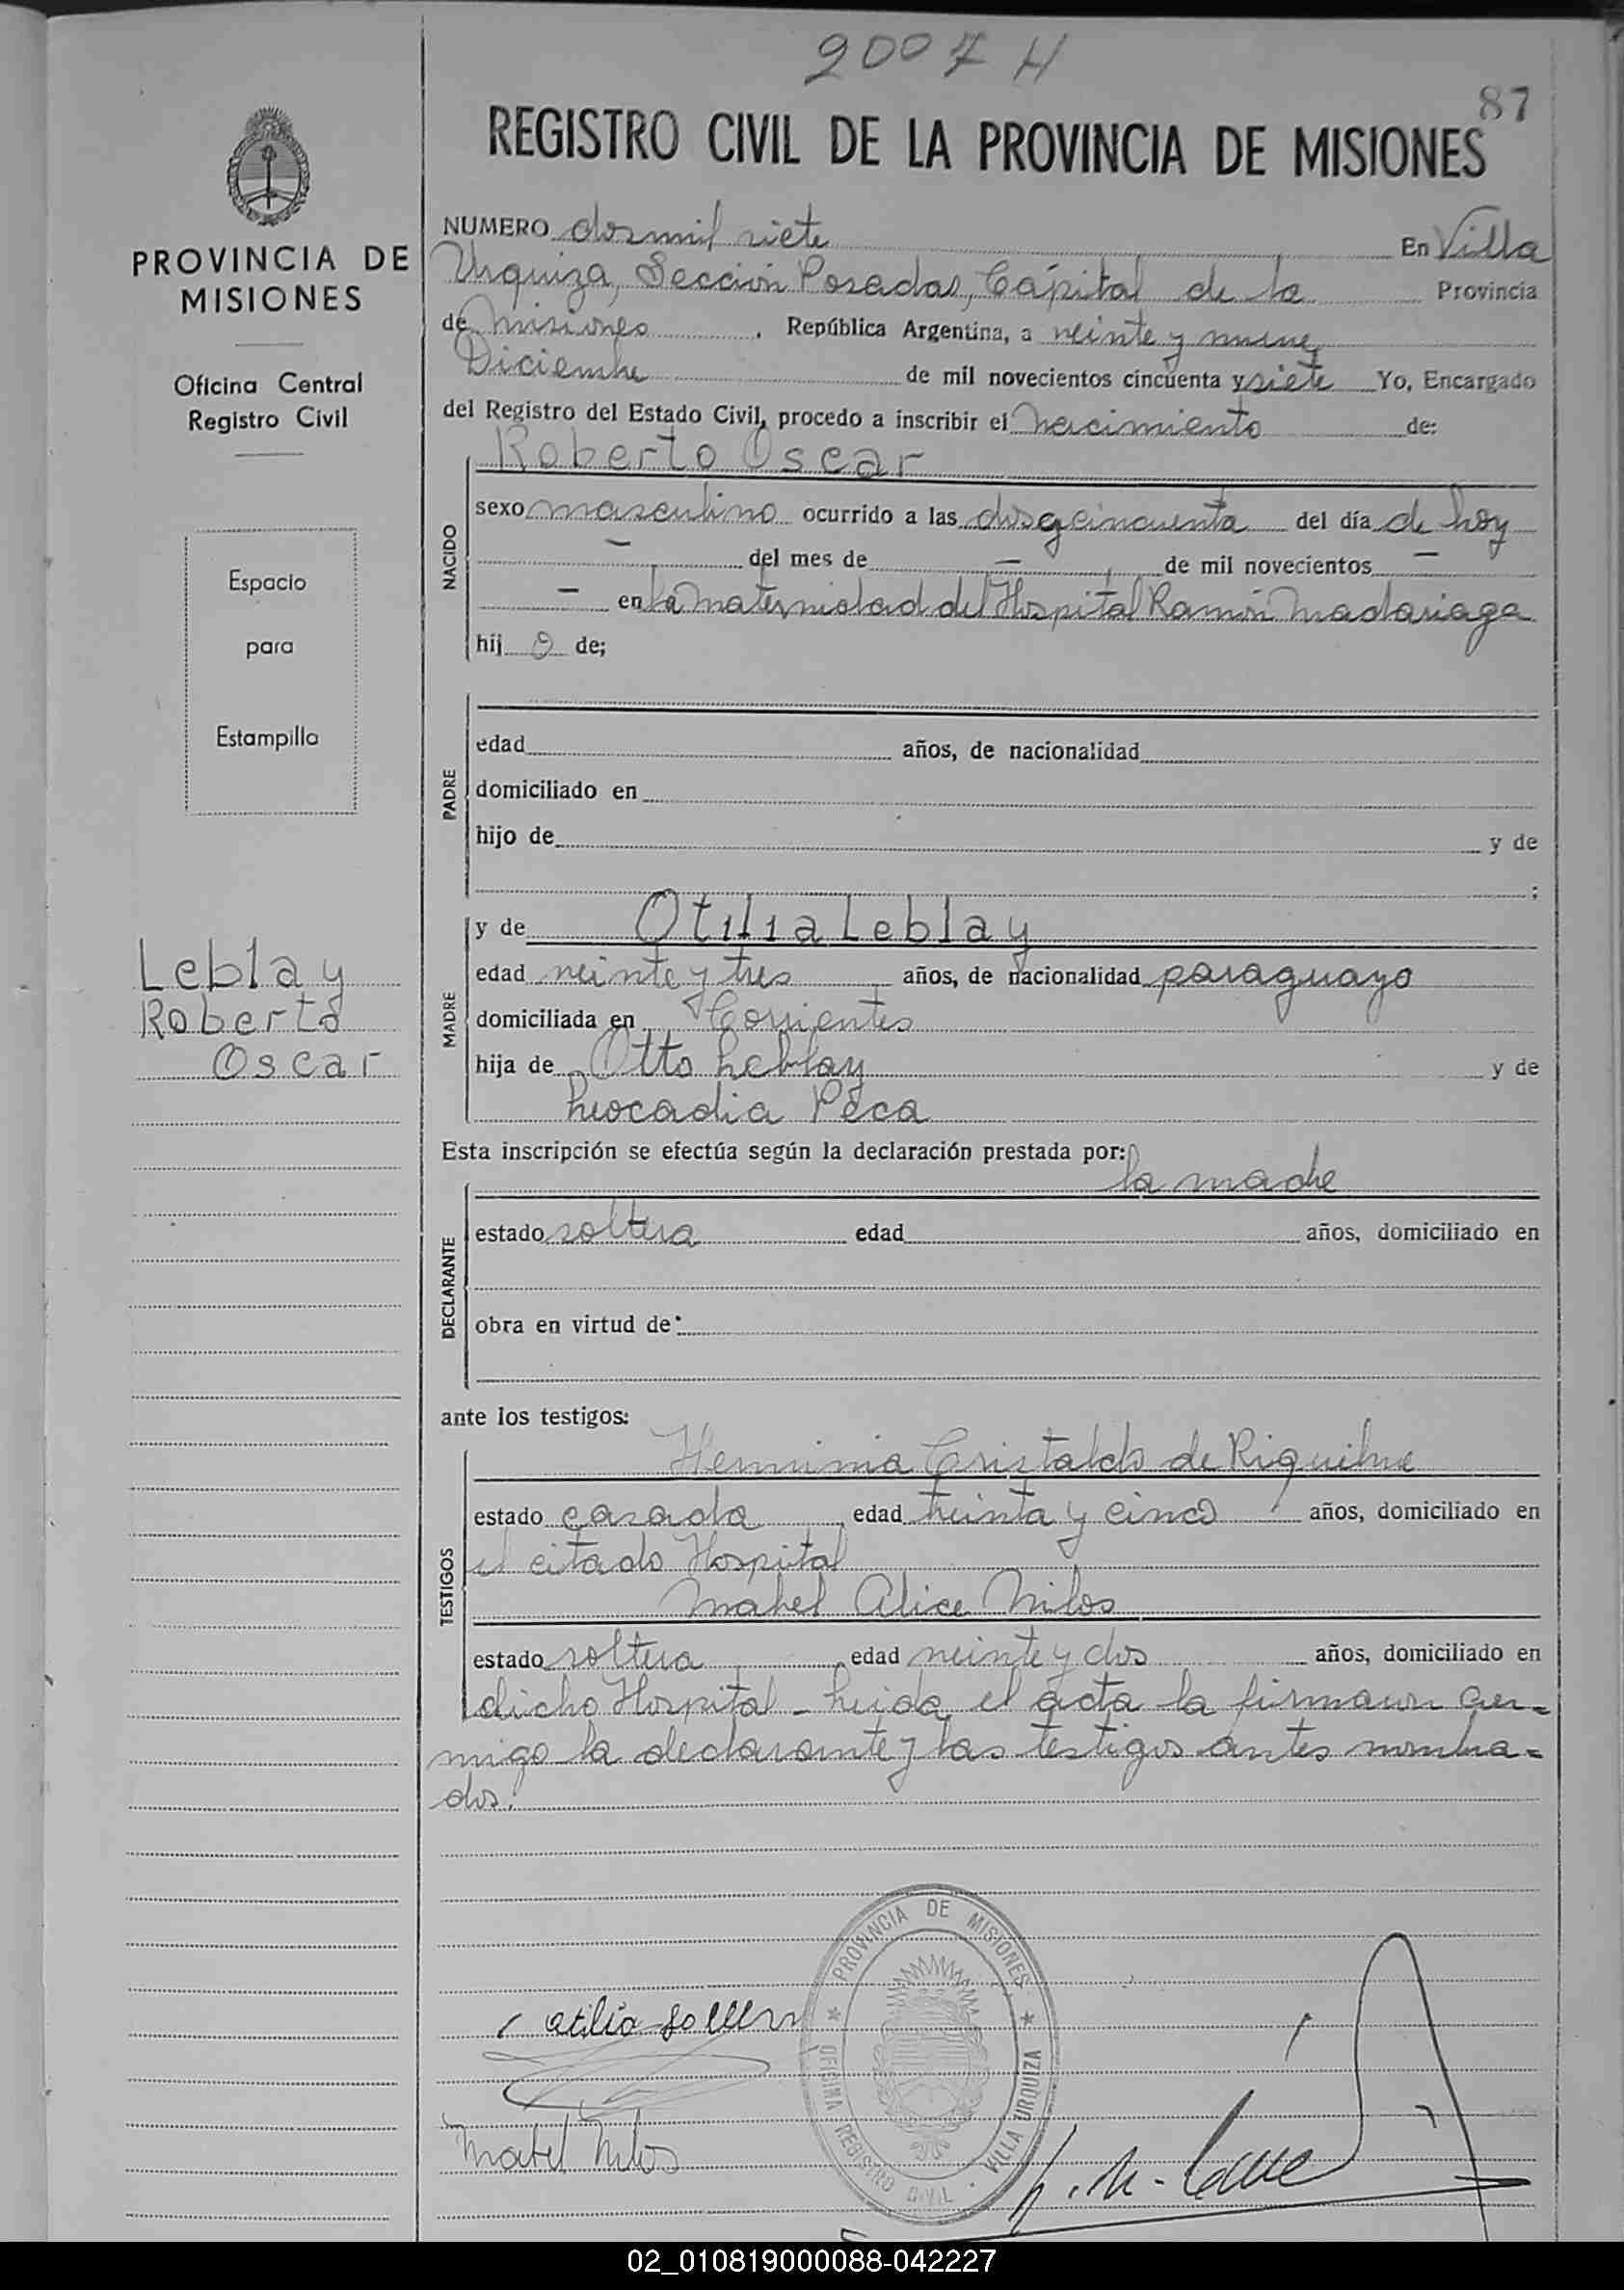 2007 H
87
REGISTRO CIVIL DE LA PROVINCIA DE MISIONES
PROVINCIA DE
MISIONES
Oficina Central
Registro Civil
Espacio
para
Estampilla
Leblay
Roberto
Oscar
NUMERO dosmil siete En Villa
Urquiza, Sección Posadas, Cápital de la Provincia
de Misiones, República Argentina, a veinte y nueve
Diciembre de mil novecientos cincuenta y siete Yo, Encargado
del Registro del Estado Civil, procedo a inscribir el nacimiento de:
Roberto Oscar
NACIDO
sexo masculino ocurrido a las dos y cincuenta del día de hoy
— del mes de — de mil novecientos —
— en la maternidad del Hospital Ramón Madariaga
hij o de;
PADRE
edad años, de nacionalidad
domiciliado en
hijo de y de
;
MADRE
y de Otilia Leblay
edad veinte y tres años, de nacionalidad paraguayo
domiciliada en Corrientes
hija de Otto Leblay y de
Leocadia Peca
Esta inscripción se efectúa según la declaración prestada por:
la madre
DECLARANTE
estado soltera edad años, domiciliado en
obra en virtud de:
ante los testigos:
TESTIGOS
Herminia Cristaldo de Riquelme
estado casada edad treinta y cinco años, domiciliado en
el citado Hospital
Mabel Alice Milos
estado soltera edad veinte y dos años, domiciliado en
dicho Hospital - Leida el acta la firmaron con-
migo la declarante y las testigos antes nombra-
dos.
PROVINCIA DE MISIONES
OFICINA REGISTRO CIVIL - VILLA URQUIZA
Mabel Milos
02_010819000088-042227